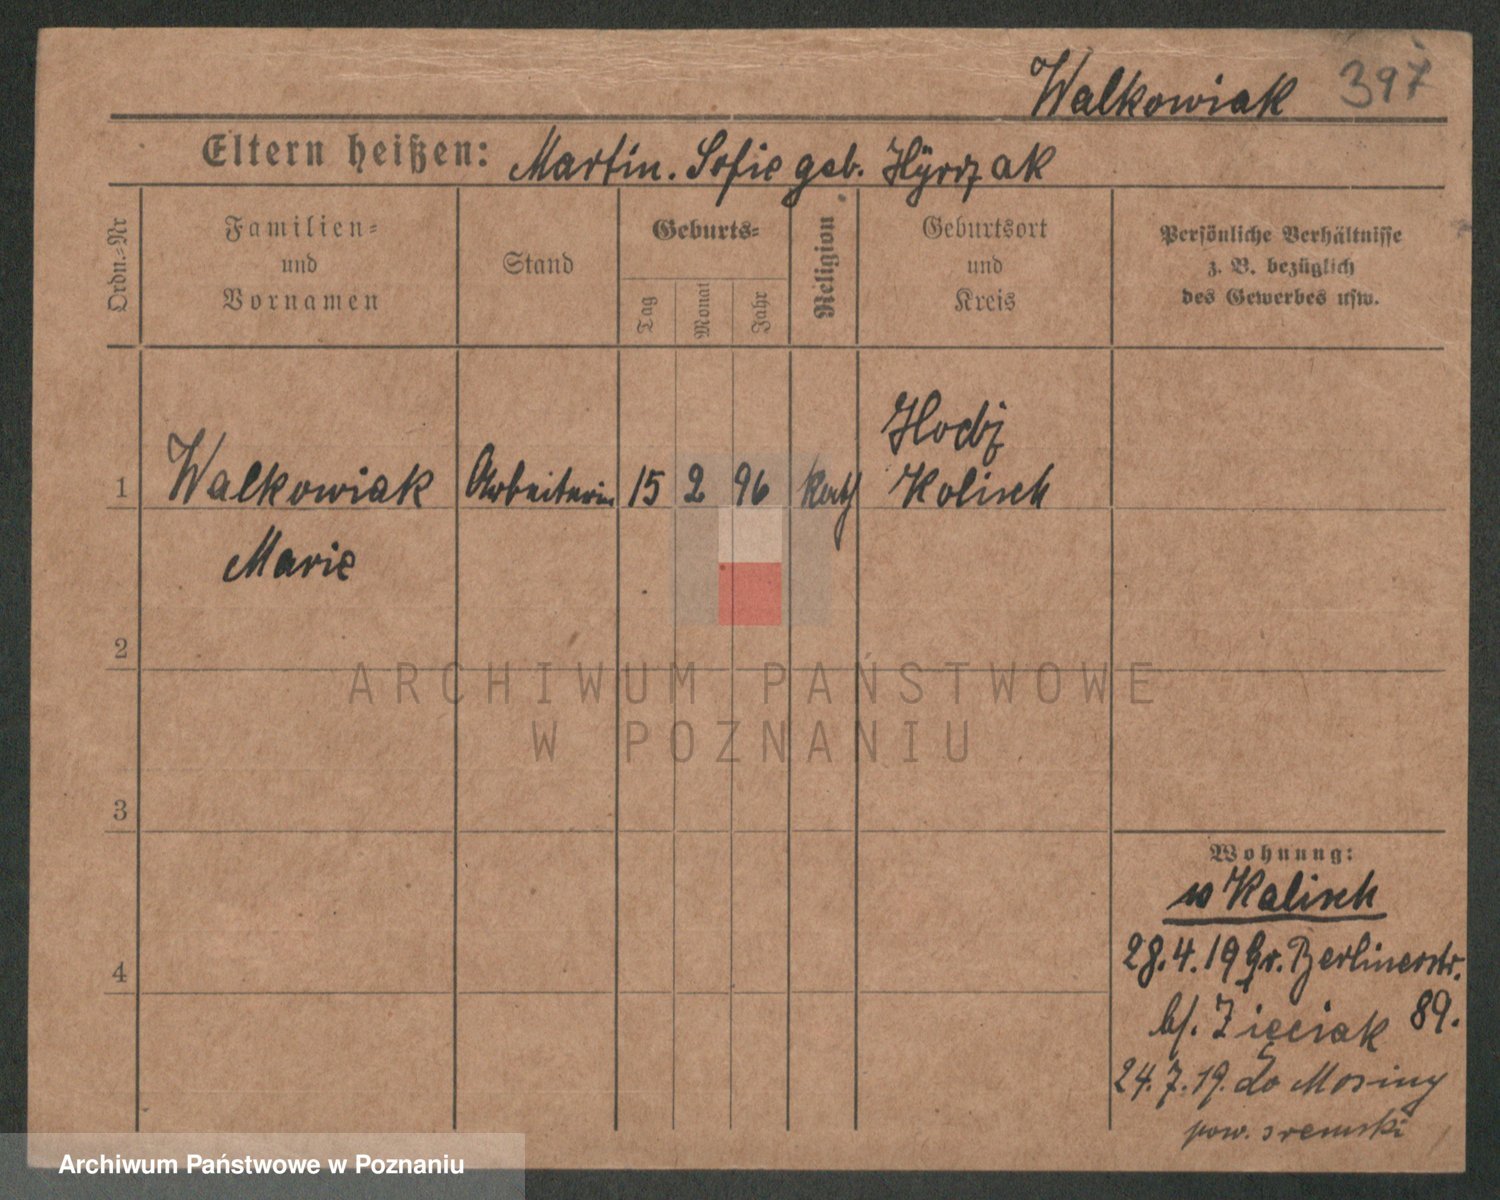 Walkowiak 397
Eltern heißen: Martin. Sofie geb.
Ordn.=Nr
Familien=
und
Vornamen
Stand
Geburts=
Tag
Monat
Jahr
Religion
Geburtsort
und
Kreis
Persönliche Verhältnisse
z. B. bezüglich
des Gewerbes usw.
1 Walkowiak Arbeiterin 15 2 96 kath Kalisch
Marie
2
3
4
Wohnung:
Kalisch
28.4.19 Gr. Berlinerstr.
89.
24.7.19. do Mosiny
pow. sremski
ARCHIWUM PAŃSTWOWE
W POZNANIU
Archiwum Państwowe w Poznaniu